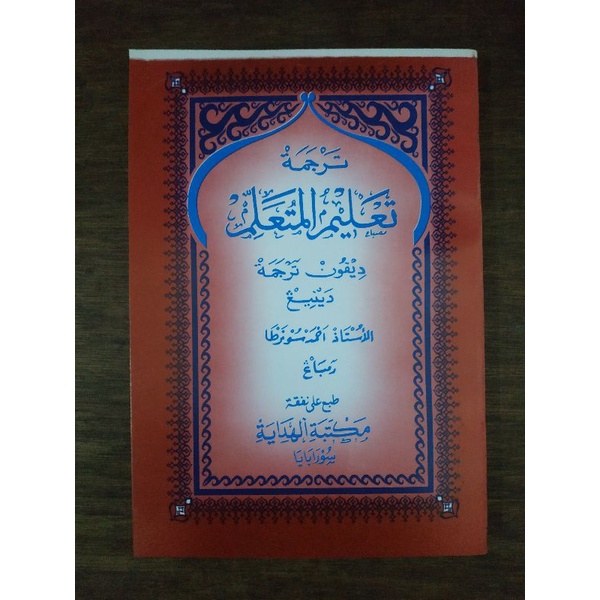 ترجمة
تعليم المتعلم
ديڤون ترجمة
دينيڠ
الأستاذ احمد سونرطا
رمباڠ
طبع على نفقة
مكتبة الهداية
سورابايا